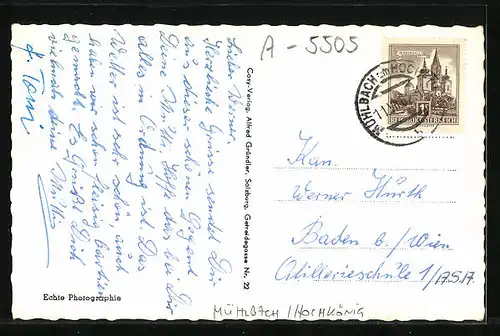 A-5505
Lieber Werner.
Herzliche Grüsse sendet Dir
aus dieser schönen Gegend
Deine Mutti. Hoffe das bei Dir
alles in Ordnung ist. Das
Wetter ist sehr schön, auch
haben wir schon fleissig
gemacht. Es Grüßt Dich
vielmals deine Mutti
Cosy-Verlag, Alfred Gründler, Salzburg, Getreidegasse Nr. 22
Echte Photographie
MÜHLBACH
REPUBLIK ÖSTERREICH
Kan.
Werner Hürth
Baden b/Wien
Artillerieschule 1/7S.17.
MÜHLBACH / HOCHKÖNIG